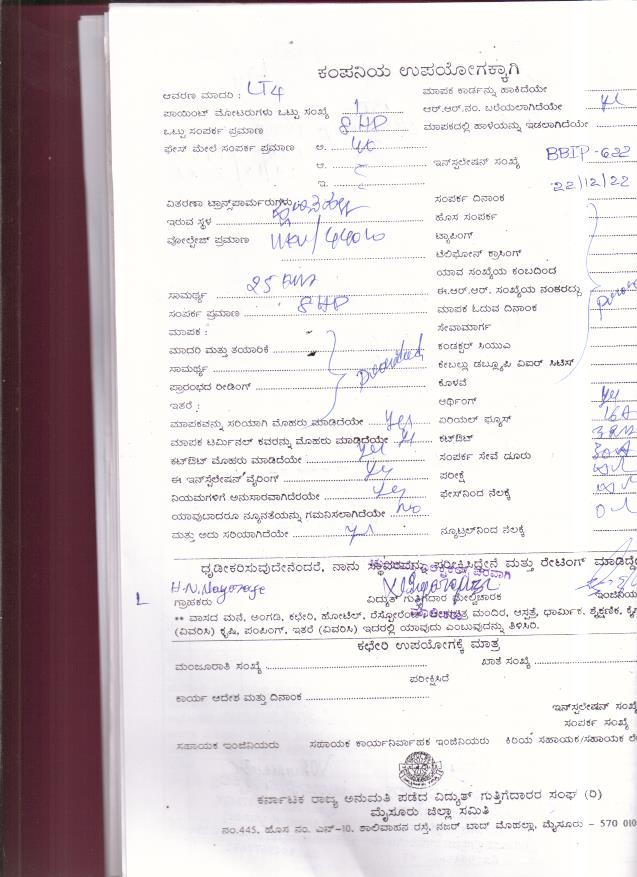 ಕಂಪನಿಯ ಉಪಯೋಗಕ್ಕಾಗಿ
ಆವರಣ ಮಾದರಿ : LT4 ಮಾಪಕ ಕಾರ್ಡನ್ನು ಹಾಕಿದೆಯೇ
ಪಾಯಿಂಟ್ ಮೋಟರುಗಳು ಒಟ್ಟು ಸಂಖ್ಯೆ 1 ಆರ್.ಆರ್.ನಂ. ಬರೆಯಲಾಗಿದೆಯೇ
ಒಟ್ಟು ಸಂಪರ್ಕ ಪ್ರಮಾಣ 8 HP ಮಾಪಕದಲ್ಲಿ ಹಾಳೆಯನ್ನು ಇಡಲಾಗಿದೆಯೇ
ಫೇಸ್ ಮೇಲೆ ಸಂಪರ್ಕ ಪ್ರಮಾಣ ಅ.
ಆ. ಇನ್ಸ್ಟಲೇಷನ್ ಸಂಖ್ಯೆ BBIP-622
ಇ. 22/12/22
ವಿತರಣಾ ಟ್ರಾನ್ಸ್‌ಪಾರ್ಮರುಗಳು ಸಂಪರ್ಕ ದಿನಾಂಕ
ಇರುವ ಸ್ಥಳ ಹೊಸ ಸಂಪರ್ಕ
ವೋಲ್ಟೇಜ್ ಪ್ರಮಾಣ ಟ್ಯಾಪಿಂಗ್
ಟೆಲಿಫೋನ್ ಕ್ರಾಸಿಂಗ್
ಯಾವ ಸಂಖ್ಯೆಯ ಕಂಬದಿಂದ
ಸಾಮರ್ಥ್ಯ 25 ಈ.ಆರ್.ಆರ್. ಸಂಖ್ಯೆಯ ನಂತರದ್ದು
ಸಂಪರ್ಕ ಪ್ರಮಾಣ 8 HP ಮಾಪಕ ಓದುವ ದಿನಾಂಕ
ಮಾಪಕ : ಸೇವಾಮಾರ್ಗ
ಮಾದರಿ ಮತ್ತು ತಯಾರಿಕೆ ಕಂಡಕ್ಟರ್ ಸಿಯುಎ
ಸಾಮರ್ಥ್ಯ ಕೇಬಲ್ಲು ಡಬ್ಲ್ಯೂಪಿ ವಿಐರ್ ಸಿಟಿಸ್
ಪ್ರಾರಂಭದ ರೀಡಿಂಗ್ ಕೊಳವೆ
ಇತರೆ : ಆರ್ಥಿಂಗ್ Yes
ಮಾಪಕವನ್ನು ಸರಿಯಾಗಿ ಮೊಹರು ಮಾಡಿದೆಯೇ Yes ಏರಿಯಲ್ ಫ್ಯೂಸ್ 16A
ಮಾಪಕ ಟರ್ಮಿನಲ್ ಕವರನ್ನು ಮೊಹರು ಮಾಡಿದೆಯೇ ಕಟ್ಔಟ್
ಕಟ್ಔಟ್ ಮೊಹರು ಮಾಡಿದೆಯೇ Yes ಸಂಪರ್ಕ ಸೇವೆ ದೂರು
ಈ ಇನ್‌ಸ್ಟಲೇಷನ್ ವೈರಿಂಗ್ Yes ಪರೀಕ್ಷೆ
ನಿಯಮಗಳಿಗೆ ಅನುಸಾರವಾಗಿದೆಯೇ Yes ಫೇಸ್‌ನಿಂದ ನೆಲಕ್ಕೆ
ಯಾವುದಾದರೂ ನ್ಯೂನತೆಯನ್ನು ಗಮನಿಸಲಾಗಿದೆಯೇ No
ಮತ್ತು ಅದು ಸರಿಯಾಗಿದೆಯೇ ನ್ಯೂಟ್ರಲ್‌ನಿಂದ ನೆಲಕ್ಕೆ
ಧೃಡೀಕರಿಸುವುದೇನೆಂದರೆ, ನಾನು ಸ್ಥಾವರವನ್ನು ಪರೀಕ್ಷಿಸಿದ್ದೇನೆ ಮತ್ತು ರೇಟಿಂಗ್ ಮಾಡಿದ್ದೇ
H.N. Nagaraje
ಗ್ರಾಹಕರು ವಿದ್ಯುತ್ ಗುತ್ತಿಗೆದಾರ ಮೇಲ್ವಿಚಾರಕ ಇಂಜಿನಿಯ
** ವಾಸದ ಮನೆ, ಅಂಗಡಿ, ಕಛೇರಿ, ಹೋಟೆಲ್, ರೆಸ್ಟೋರೆಂಟ್, ಮಂದಿರ, ಆಸ್ಪತ್ರೆ, ಧಾರ್ಮಿಕ, ಶೈಕ್ಷಣಿಕ, ಕೈ
(ವಿವರಿಸಿ) ಕೃಷಿ, ಪಂಪಿಂಗ್, ಇತರೆ (ವಿವರಿಸಿ) ಇದರಲ್ಲಿ ಯಾವುದು ಎಂಬುವುದನ್ನು ತಿಳಿಸಿರಿ.
ಕಛೇರಿ ಉಪಯೋಗಕ್ಕೆ ಮಾತ್ರ
ಮಂಜೂರಾತಿ ಸಂಖ್ಯೆ ಖಾತೆ ಸಂಖ್ಯೆ
ಪರೀಕ್ಷಿಸಿದೆ
ಕಾರ್ಯ ಆದೇಶ ಮತ್ತು ದಿನಾಂಕ
ಇನ್‌ಸ್ಟಲೇಷನ್ ಸಂಖ್ಯೆ
ಸಂಪರ್ಕ ಸಂಖ್ಯೆ
ಸಹಾಯಕ ಇಂಜಿನಿಯರು ಸಹಾಯಕ ಕಾರ್ಯನಿರ್ವಾಹಕ ಇಂಜಿನಿಯರು ಕಿರಿಯ ಸಹಾಯಕ/ಸಹಾಯಕ ಲೇ
ಕರ್ನಾಟಕ ರಾಜ್ಯ ಅನುಮತಿ ಪಡೆದ ವಿದ್ಯುತ್ ಗುತ್ತಿಗೆದಾರರ ಸಂಘ (ರಿ)
ಮೈಸೂರು ಜಿಲ್ಲಾ ಸಮಿತಿ
ನಂ.445, ಹೊಸ ನಂ. ಎನ್-10, ಶಾಲಿವಾಹನ ರಸ್ತೆ, ನಜರ್ ಬಾದ್ ಮೊಹಲ್ಲಾ, ಮೈಸೂರು - 570 010